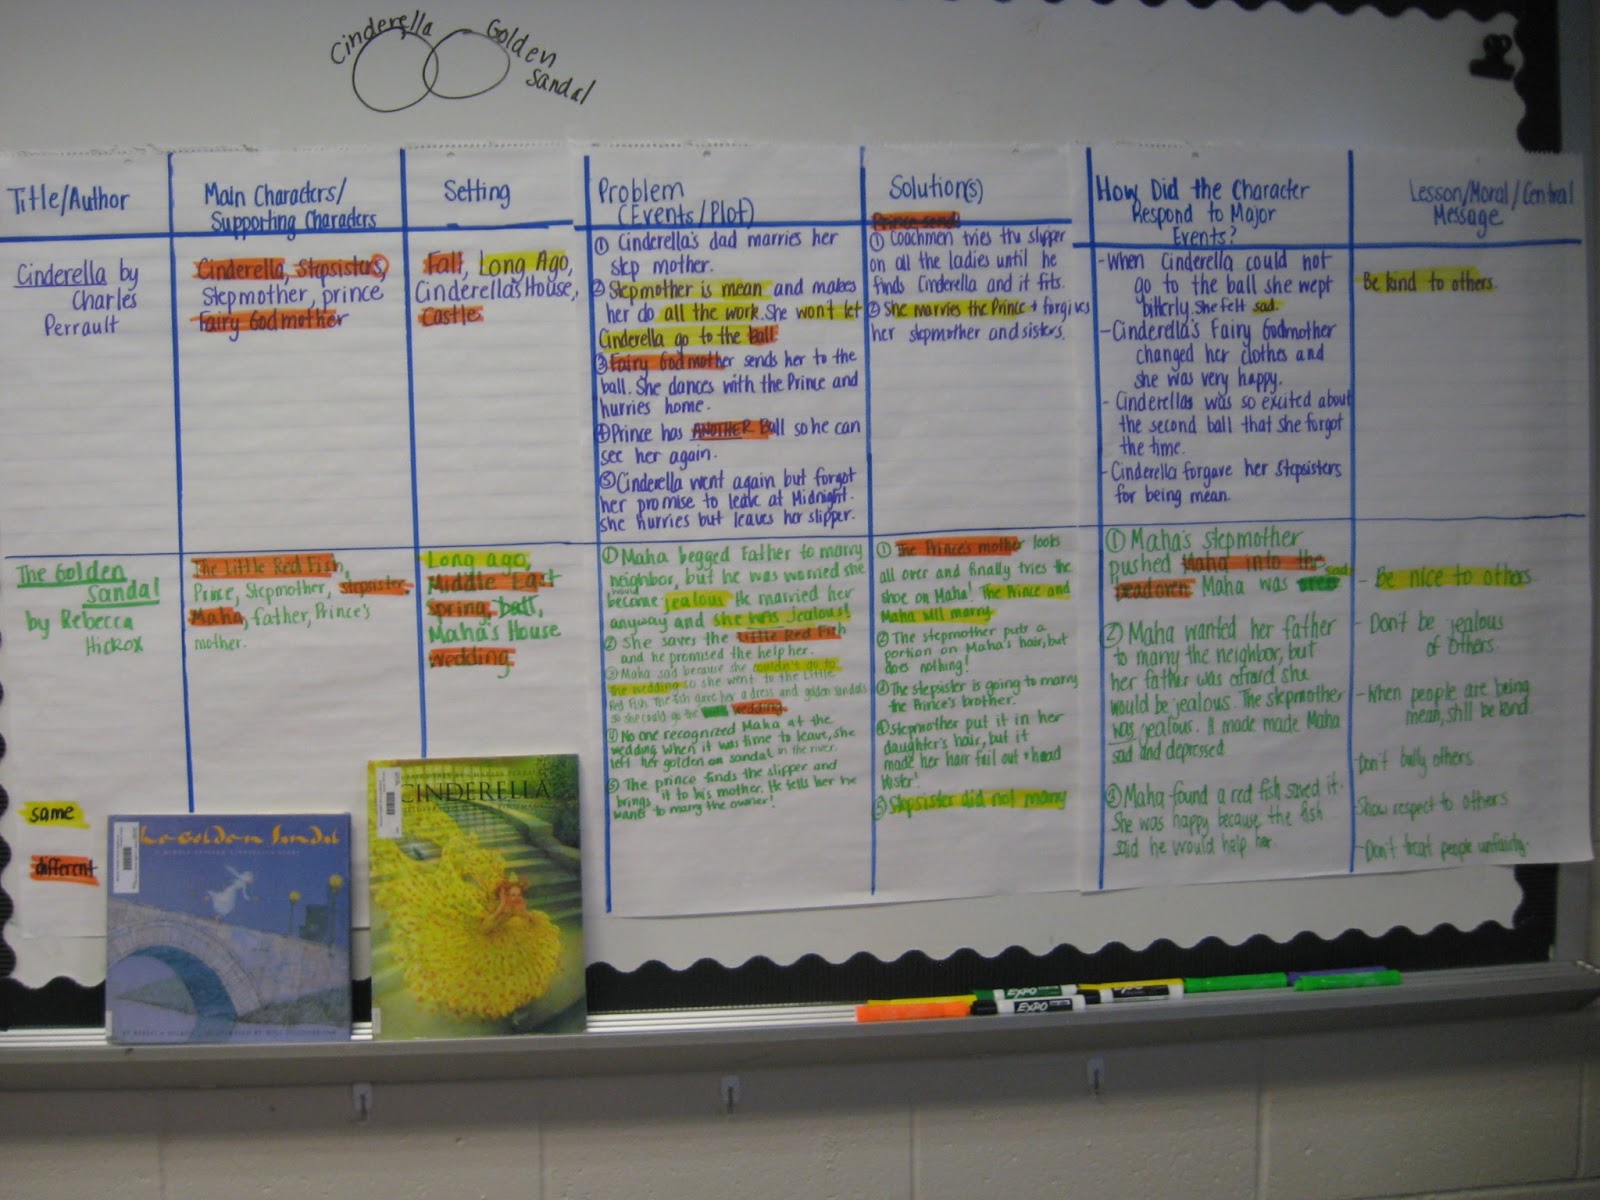 Cinderella
Golden
Sandal
Title/Author
Main Characters/
Supporting Characters
Setting
Problem
(Events/Plot)
Solution(s)
How Did the Character
Respond to Major
Events?
Lesson/Moral/Central
Message
Cinderella by
Charles
Perrault
Cinderella, Stepsisters,
Stepmother, prince
Fairy Godmother
Fall, Long Ago,
Cinderella's House,
Castle
① Cinderella's dad marries her
step mother.
② Stepmother is mean and makes
her do all the work. She won't let
Cinderella go to the ball
③ Fairy Godmother sends her to the
ball. She dances with the Prince and
hurries home.
④ Prince has ANOTHER Ball so he can
see her again.
⑤ Cinderella went again but forgot
her promise to leave at Midnight.
she hurries but leaves her slipper.
Prince send
① Coachmen tries the slipper
on all the ladies until he
finds Cinderella and it fits.
② She marries the Prince + forgives
her stepmother and sisters.
- When Cinderella could not
go to the ball she wept
bitterly. She felt sad.
- Cinderella's Fairy Godmother
changed her clothes and
she was very happy.
- Cinderellas was so excited about
the second ball that she forgot
the time.
- Cinderella forgave her Stepsisters
for being mean.
Be kind to others.
The Golden
Sandal
by Rebecca
Hickox
The Little Red Fish,
Prince, Stepmother, stepsister,
Maha, father, Prince's
mother.
Long ago,
Middle East
Spring, ball,
Maha's House
wedding
① Maha begged Father to marry
neighbor, but he was worried she
would
become jealous He married her
anyway and she was jealous!
② She saves the Little Red Fish
and he promised the help her.
③ Maha sad because she couldn't go to
the wedding so she went to the Little
Red Fish. The fish gave her a dress and golden sandals
so she could go the wedding.
④ No one recognized Maha at the
wedding when it was time to leave, she
left her golden sandal in the river.
⑤ The prince finds the slipper and
brings it to his mother. He tells her he
wants to marry the owner!
① The Prince's mother looks
all over and finally tries the
shoe on Maha! The Prince and
Maha will marry
② The stepmother puts a
portion on Maha's hair, but
does nothing!
The stepsister is going to marry
the Prince's brother.
④ Stepmother put it in her
daughter's hair, but it
made her hair fall out + head
blister!
⑤ Stepsister did not marry
① Maha's stepmother
pushed Maha into the
bread oven Maha was sad
② Maha wanted her father
to marry the neighbor, but
her father was afraid she
would be jealous. The stepmother
was jealous. It made made Maha
sad and depressed
③ Maha found a red fish saved it.
She was happy because the fish
said he would help her.
- Be nice to others
- Don't be jealous
of others.
- When people are being
mean, still be kind.
- Don't bully others
Show respect to others
- Don't treat people unfairly.
same
different
The Golden Sandal
A MIDDLE EASTERN CINDERELLA STORY
CINDERELLA
EXPO
EXPO